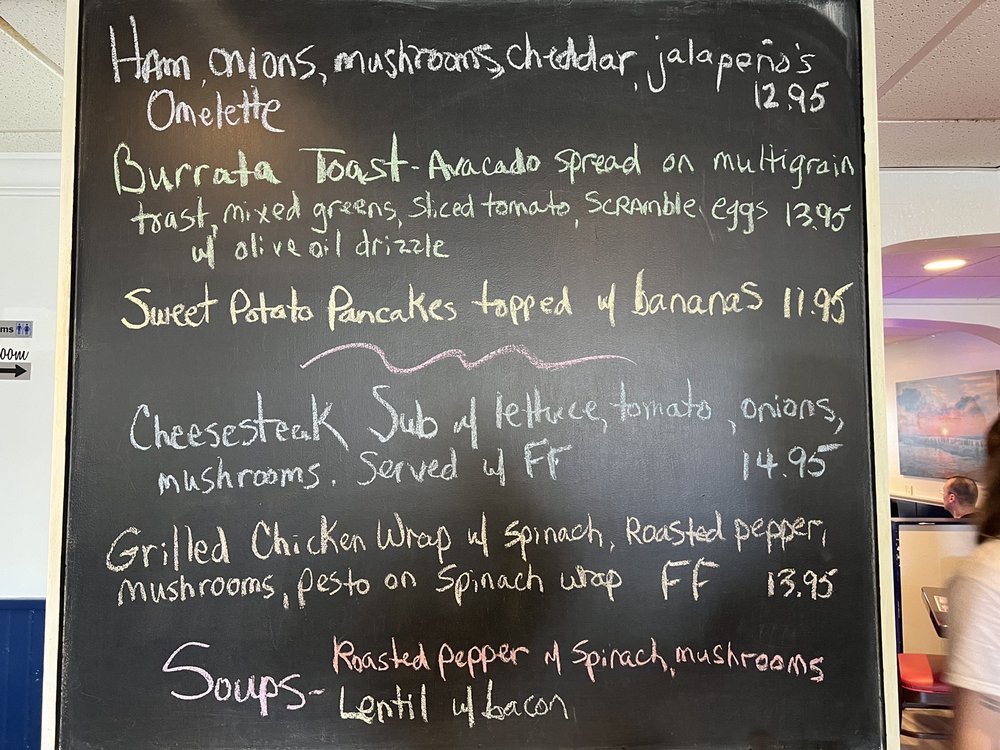 Ham, onions, mushrooms, cheddar, jalapeño's
Omelette 12.95
Burrata Toast - Avacado spread on multigrain
toast, mixed greens, sliced tomato, scramble eggs 13.95
w/ olive oil drizzle
Sweet Potato Pancakes topped w/ bananas 11.95
Cheesesteak Sub w/ lettuce, tomato, onions,
mushrooms. Served w/ FF 14.95
Grilled Chicken Wrap w/ spinach, Roasted pepper,
mushrooms, pesto on Spinach wrap FF 13.95
Soups- Roasted pepper w/ Spinach, mushrooms
Lentil w/ bacon
ms
oom